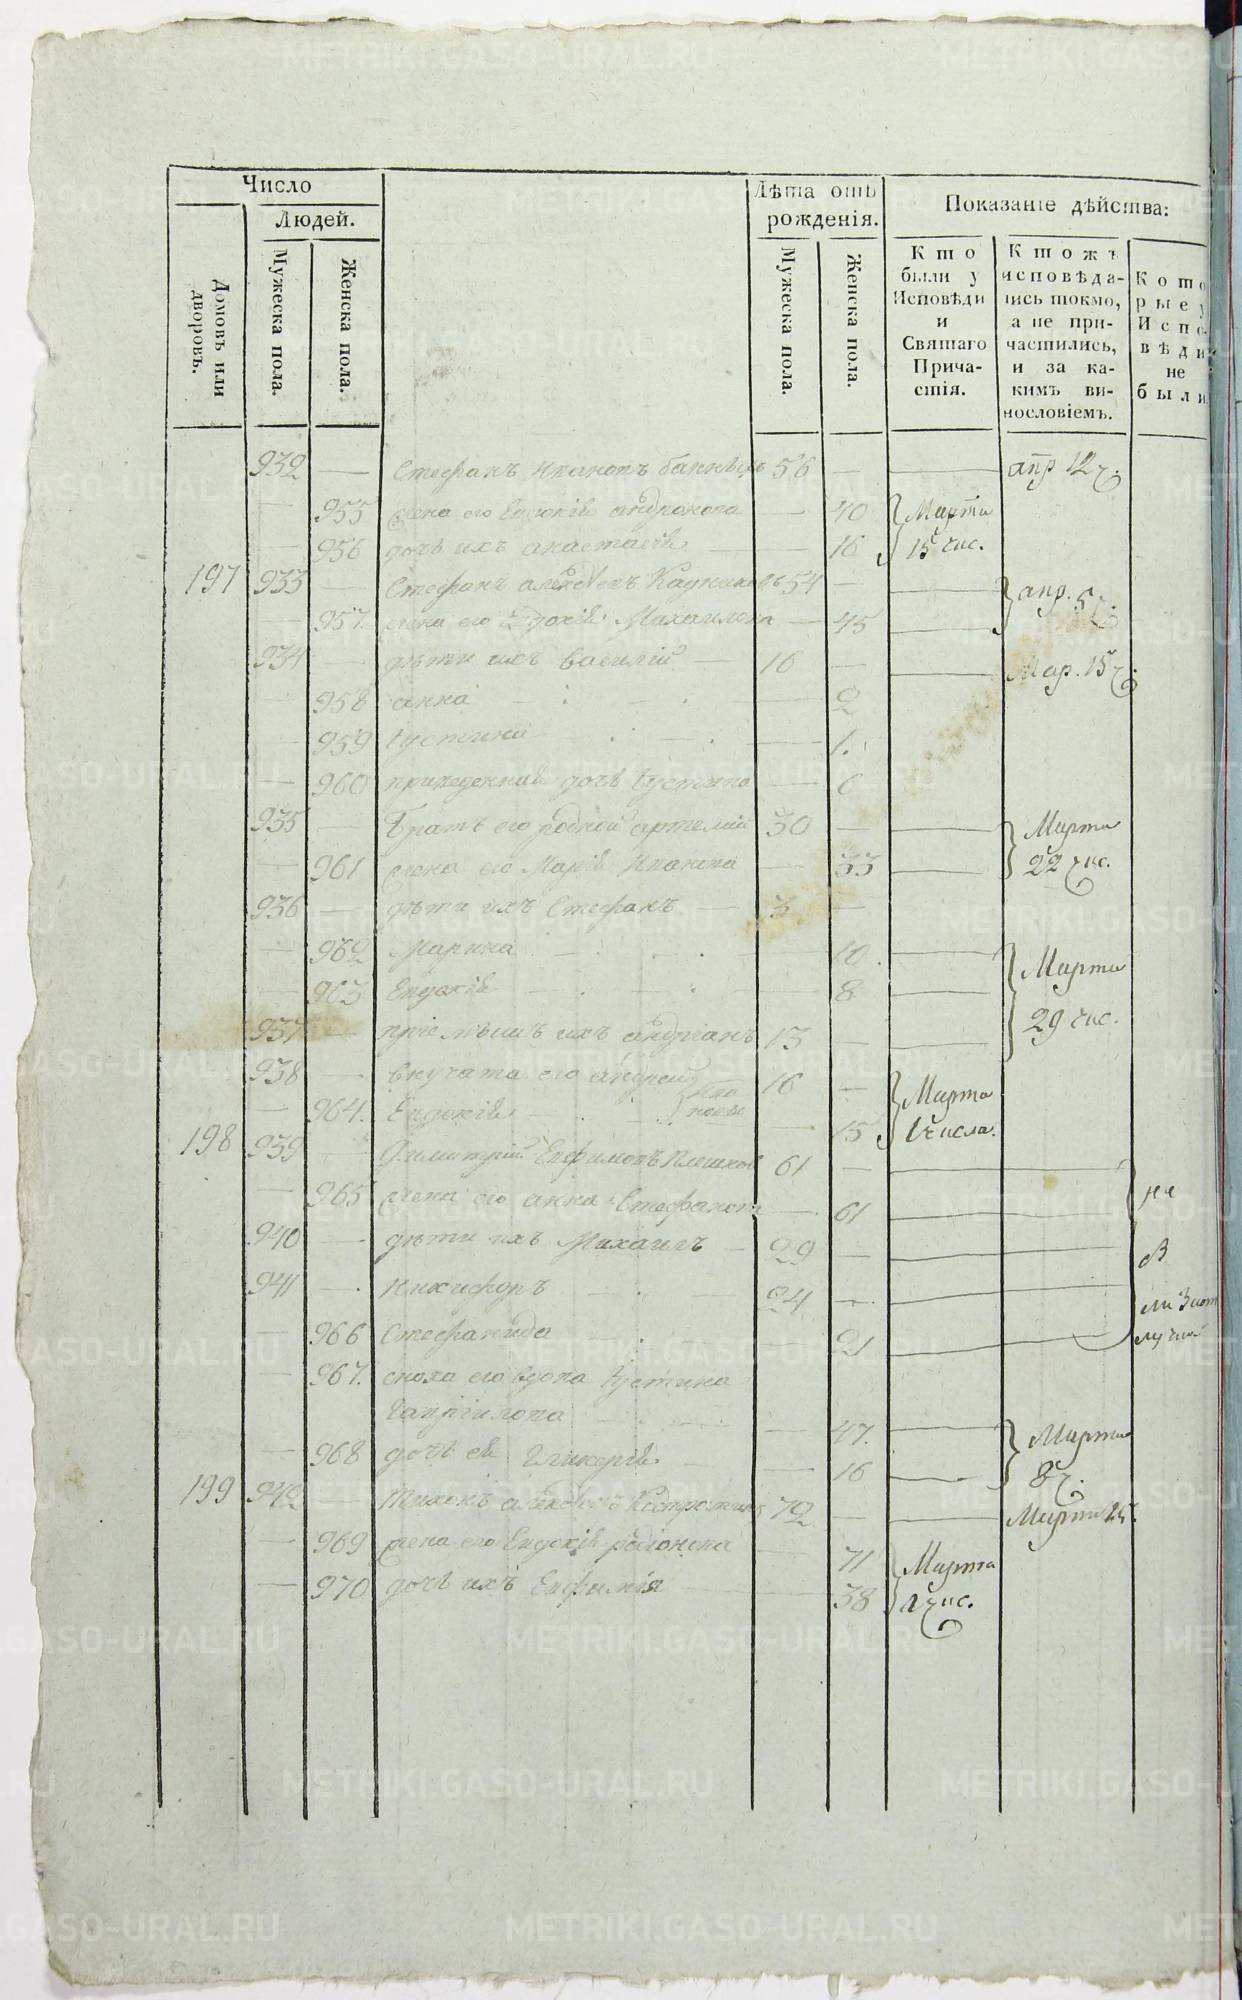 Число
Людей.
Домовъ или дворовъ.
Мужеска пола.
Женска пола.
Лѣта отъ рожденія.
Мужеска пола.
Женска пола.
Показаніе дѣйства:
Кто были у Исповѣди и Святаго Причастія.
Ктожъ исповѣдались токмо, а не причастились, и за какимъ винословіемъ.
Которые у Исповѣди не были
932 — Стефанъ Ивановъ 56 — — апр 12 ч.
955 жена его Евдокія андронова — 40 Марта
956 дочь ихъ анастасія — 16 15 чис.
197 933 — Стефанъ Кадниковъ 54 — — апр. 5 ч.
957. жена его Евдокія Михаилова — 45 —
934 — дѣти ихъ Василій — 16 — — Мар. 15 ч.
958 анна — 2
959 Іустина — 1.
960 дочь Іустина — 6
935 — Братъ его родной артемій 30 — — Марта
961 жена его Марія Иванова — 33 — 22 чис.
936 — дѣти ихъ Стефанъ — 3 —
962 Марина — 10. — Марта
963 Евдокія — 8 — 29 чис.
937 — пріемышъ ихъ андріанъ 13 — —
938 — внучата его андрей 16 — Марта
964. Евдокія — 15 1 числа.
198 939 — Димитрій Евфимовъ Плешков 61 — —
965 жена его анна Стефанов — 61 —
940 — дѣти ихъ Михаилъ — 29 — —
941 — Никифоръ — 24 — —
966 Стефанида — 21 —
967. сноха его вдова Іустина
Гавріилова — 47. — Марта
968 дочь ея Гликерія — 16 — 8 ч.
199 942 — Тихонъ 72 — — Марта 25.
969 жена его Евдокія родіонова — 71 Марта
970 дочь ихъ Евфимія — 38 1 чис.